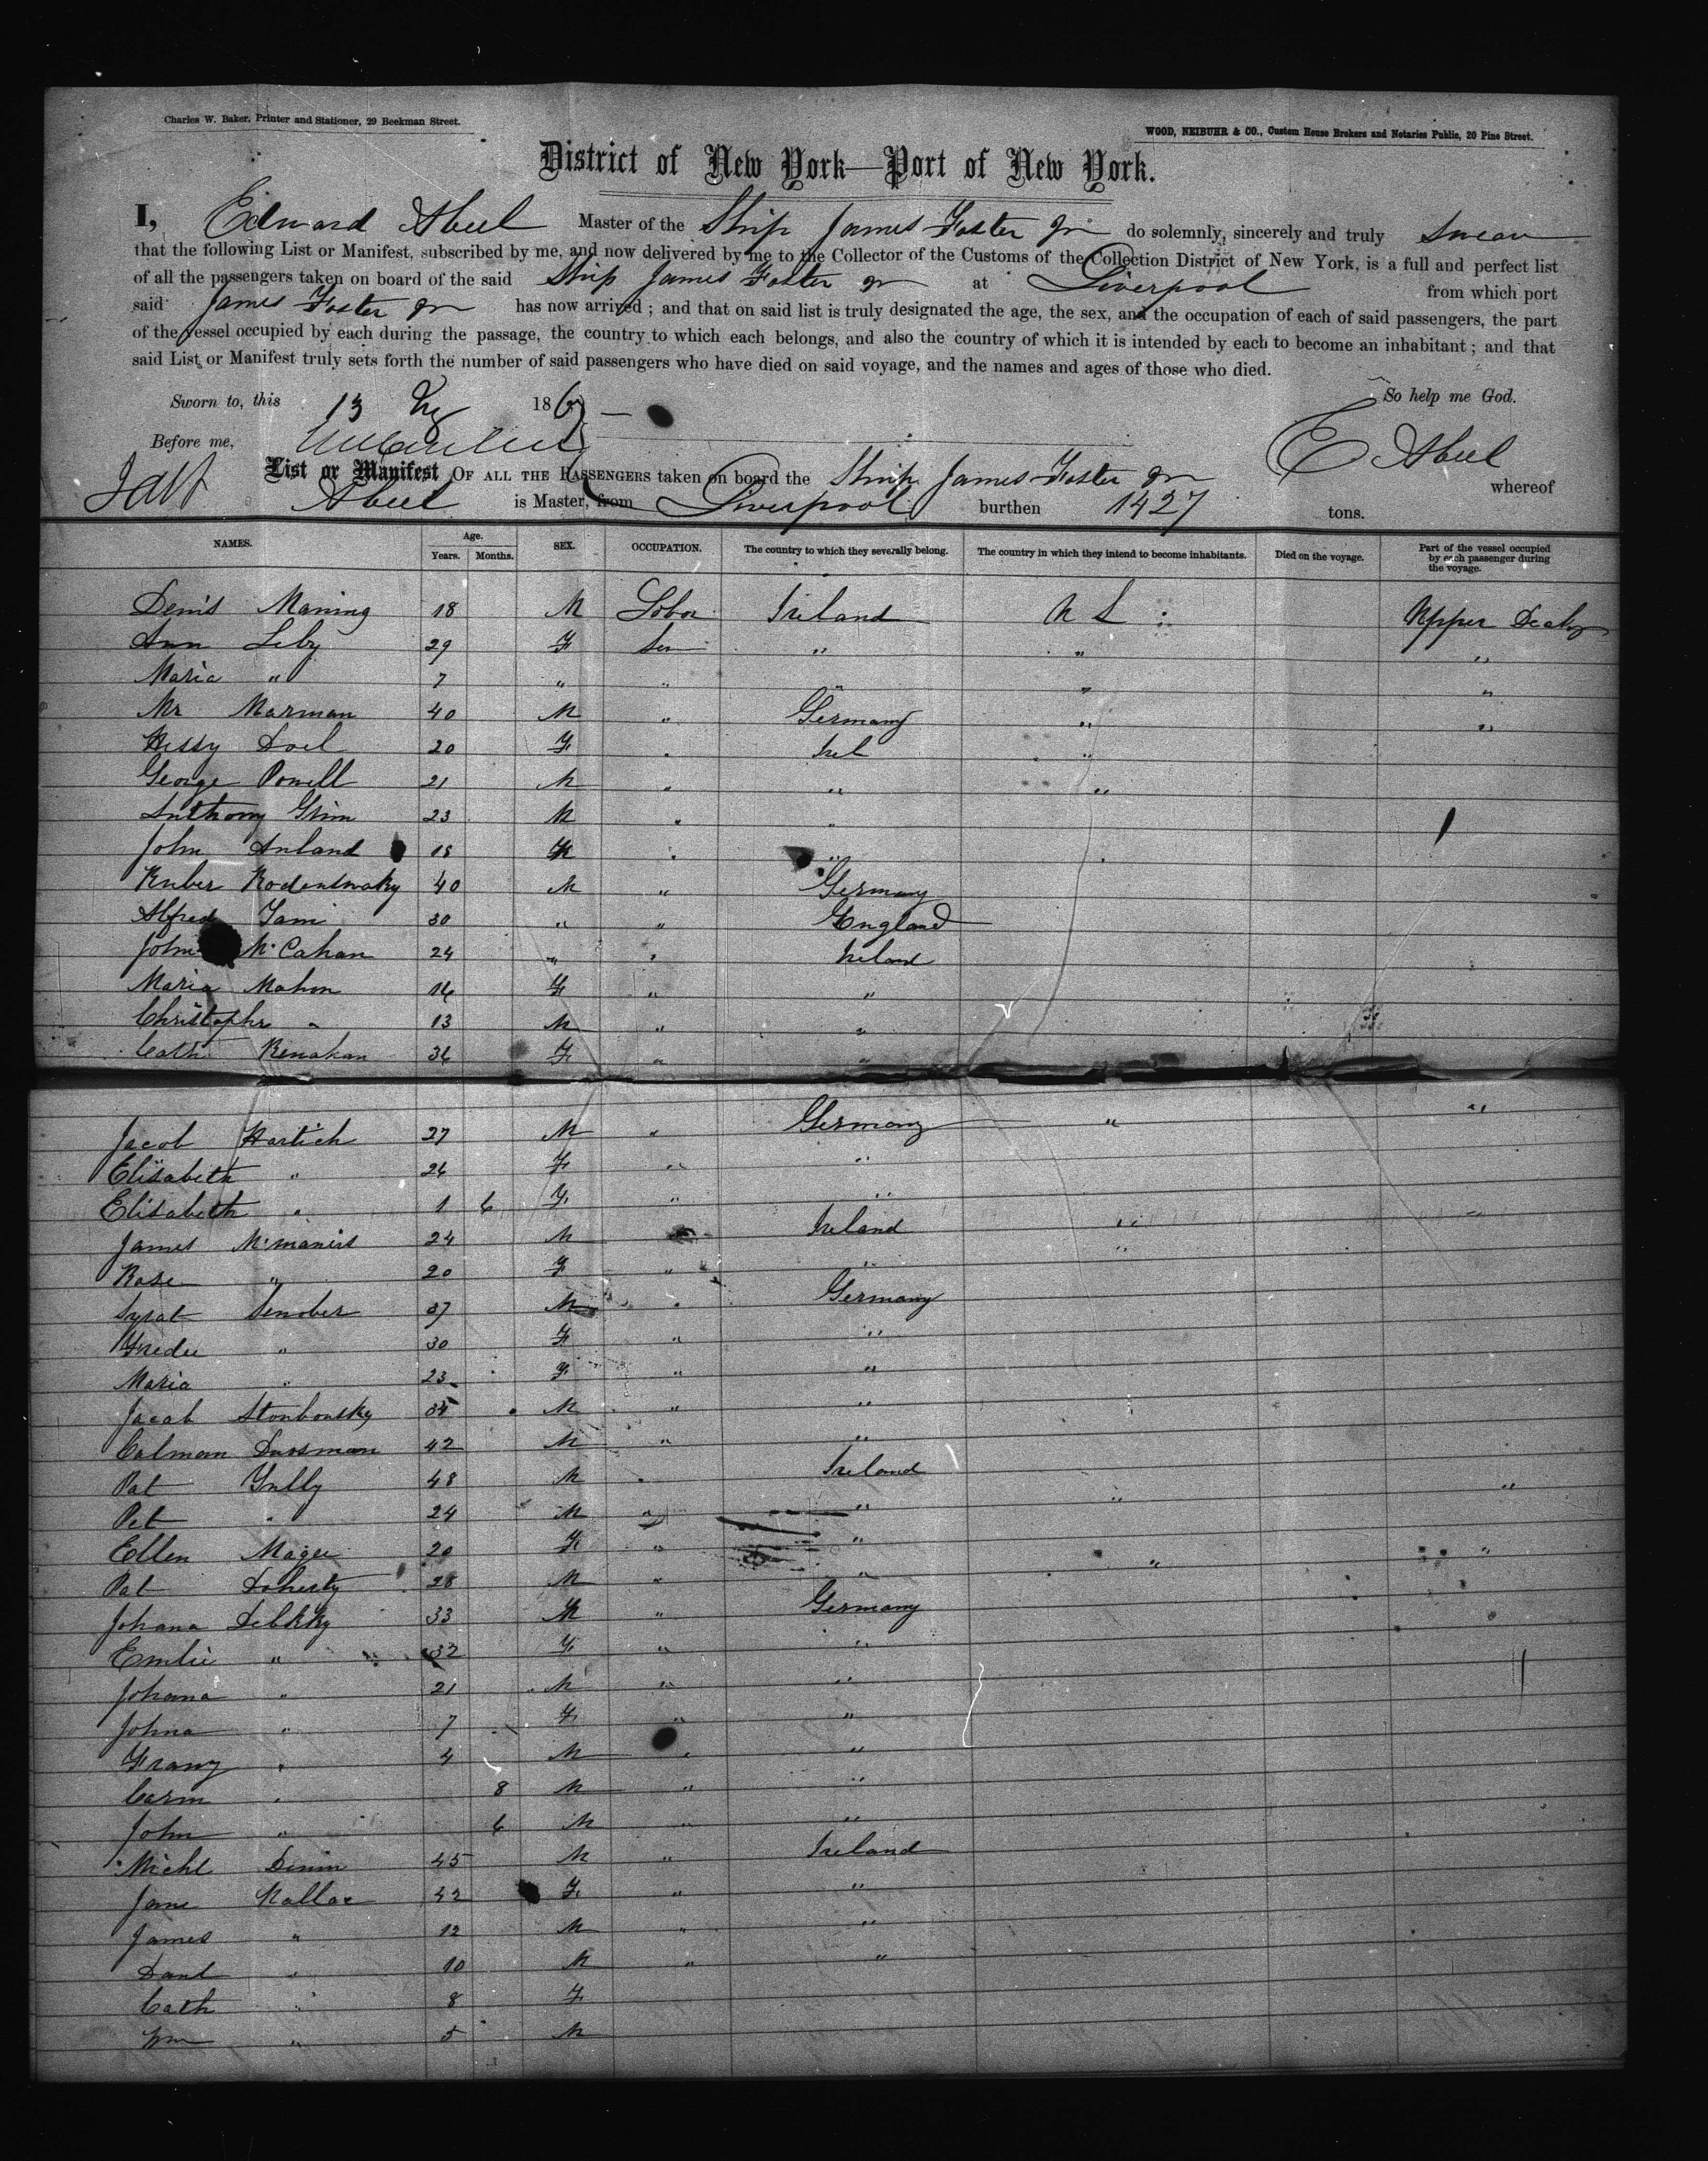 Charles W. Baker, Printer and Stationer, 29 Beekman Street.
WOOD, NEIBUHR & CO., Custom House Brokers and Notaries Public, 20 Pine Street.
District of New York—Port of New York.
I, Edward Abeel Master of the Ship James Foster Jr do solemnly, sincerely and truly Swear
that the following List or Manifest, subscribed by me, and now delivered by me to the Collector of the Customs of the Collection District of New York, is a full and perfect list
of all the passengers taken on board of the said Ship James Foster Jr at Liverpool from which port
said James Foster Jr has now arrived; and that on said list is truly designated the age, the sex, and the occupation of each of said passengers, the part
of the vessel occupied by each during the passage, the country to which each belongs, and also the country of which it is intended by each to become an inhabitant; and that
said List or Manifest truly sets forth the number of said passengers who have died on said voyage, and the names and ages of those who died.
Sworn to, this 13 186 So help me God.
Before me, E Abeel
List or Manifest OF ALL THE PASSENGERS taken on board the Ship James Foster Jr whereof
Abeel is Master, from Liverpool burthen 1427 tons.
NAMES. Age. Years. Months. SEX. OCCUPATION. The country to which they severally belong. The country in which they intend to become inhabitants. Died on the voyage. Part of the vessel occupied by each passenger during the voyage.
Denis Maning 18 M Labor Ireland U S Upper Deck
Ann Leby 29 F Ser " " "
Maria " 7 " " " " "
Mr Marman 40 M " Germany " "
Hessy Doel 20 F " Irel "
George Powell 21 M " " "
Anthony Grim 23 M " "
John Anland 18 M " "
Kuber Rodenswaky 40 M " Germany
Alfred Yam 30 " " England
John McCahan 24 " " Ireland
Maria Mahon F " "
Christophr " 13 M " "
Cath Renahan F " "
Jacob Hartich 27 M " Germany " "
Elisabeth " F " "
Elisabeth " 1 6 F " "
James McManis 24 M Ireland " "
Rose " 20 F " " "
Senober 37 M " Germany
" 30 F " "
Maria " 23 F " "
Jacob Stonbousky 34 M " "
Colman Dussman 42 M " "
Pat Gully 48 M " Ireland
Pet " 24 M " " " "
Ellen Magee 20 F " " "
Pat Doherty 28 M " " "
Johana Debkky 33 M " Germany
Emlie " 32 F " "
Johana " 21 M " "
Johna " 7 F " "
Franz " 4 M " "
Carm " 8 M " "
John " 6 M " "
Michl Dinin 45 M " Ireland
Jane Mallar 42 F " "
James " 12 M " "
Danl " 10 M " "
Cath " 8 F
Wm " 5 M